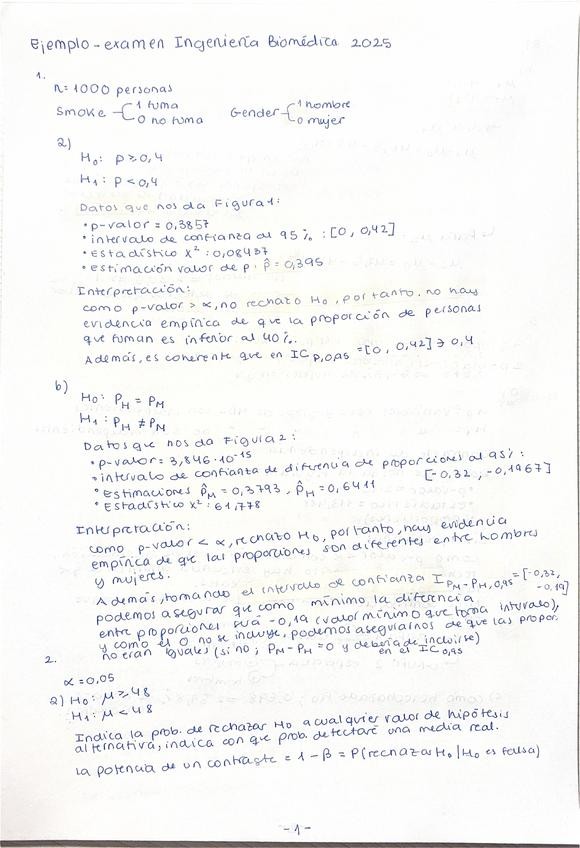 Ejemplo-examen Ingeniería Biomédica 2025
1.
n=1000 personas
Smoke 1 fuma Gender 1 hombre
0 no fuma 0 mujer
a)
H₀: p≥0,4
H₁: p<0,4
Datos que nos da Figura 1:
• p-valor = 0,3857
• intervalo de confianza al 95%: [0, 0,42]
• Estadístico X²: 0,08437
• Estimación valor de p: p̂=0,395
Interpretación:
como p-valor > α, no rechazo H₀, por tanto, no hay
evidencia empírica de que la proporción de personas
que fuman es inferior al 40%.
Además, es coherente que en IC p,0,95 = [0, 0,42] ∋ 0,4
b)
H₀: P_H = P_M
H₁: P_H ≠ P_M
Datos que nos da Figura 2:
• p-valor = 3,846·10⁻¹⁵
• intervalo de confianza de diferencia de proporciones al 95%:
[-0,32, -0,1967]
• Estimaciones p̂_M = 0,3793, p̂_H = 0,6411
• Estadístico X²: 61,778
Interpretación:
como p-valor < α, rechazo H₀, por tanto, hay evidencia
empírica de que las proporciones son diferentes entre hombres
y mujeres.
Además, tomando el intervalo de confianza I P_M-P_H, 0,95 = [-0,32, -0,19]
podemos asegurar que como mínimo, la diferencia
entre proporciones será -0,19 (valor mínimo que toma intervalo),
y como el 0 no se incluye, podemos asegurarnos de que las propor.
no eran iguales (si no; P_M - P_H = 0 y debería de incluirse)
en el IC 0,95
2.
α = 0,05
a) H₀: μ ≥ 48
H₁: μ < 48
Indica la prob. de rechazar H₀ a cualquier valor de hipótesis
alternativa, indica con que prob. detectaré una media real.
La potencia de un contraste = 1-β = P(rechazar H₀ | H₀ es falsa)
-1-